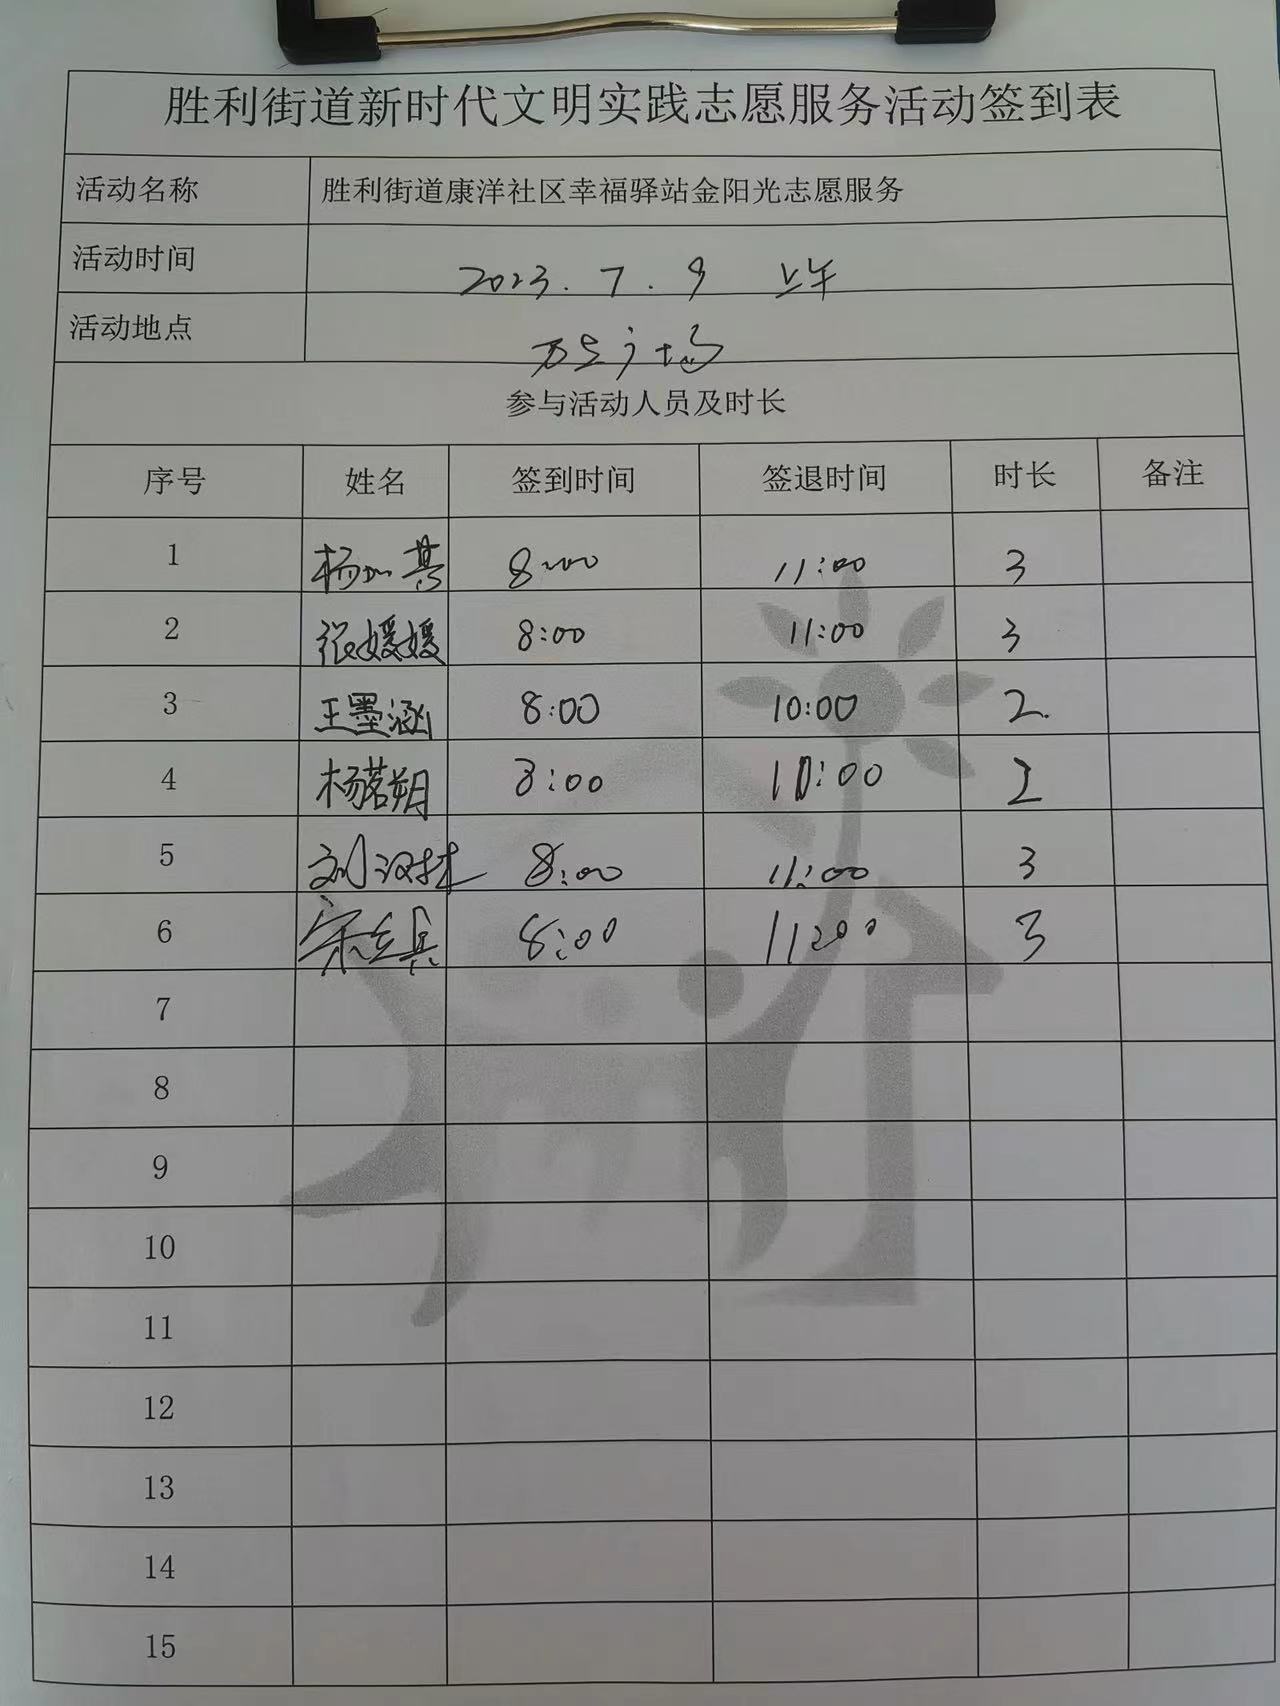 胜利街道新时代文明实践志愿服务活动签到表
活动名称 胜利街道康洋社区幸福驿站金阳光志愿服务
活动时间 2023.7.9 上午
活动地点 广场
参与活动人员及时长
序号 姓名 签到时间 签退时间 时长 备注
1 杨 8:00 11:00 3
2 张媛媛 8:00 11:00 3
3 王墨涵 8:00 10:00 2
4 杨茗朔 8:00 10:00 2
5 刘汉林 8:00 11:00 3
6 宋 8:00 11:00 3
7
8
9
10
11
12
13
14
15